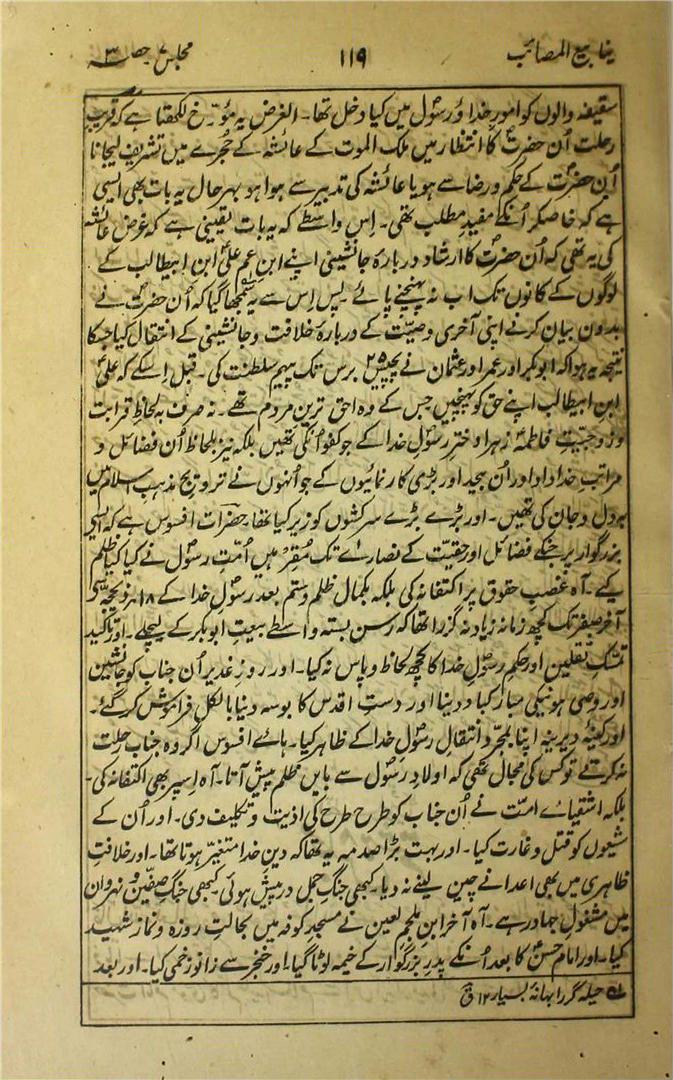 ینابیع المصائب
۱۱۹
مجلس ۷ حصہ ۳
سقیفہ والوں کو امورِ خدا و رسولؐ میں کیا دخل تھا۔ الغرض یہ مؤرخ لکھتا ہے کہ قریب
رحلت اُن حضرتؐ کا انتظار میں ملک الموت کے عائشہ کے حجرے میں تشریف لیجانا
اُن حضرتؐ کے حکم و رضا سے ہو یا عائشہ کی تدبیر سے ہوا ہو بہرحال یہ بات بھی ایسی
ہے کہ خاصکر اُنکے مفیدِ مطلب تھی۔ اِس واسطے کہ یہ بات یقینی ہے کہ غرض عائشہ
کی یہ تھی کہ اُن حضرتؐ کا ارشاد دربارۂ جانشینی اپنے ابنِ عم علیؑ ابن ابیطالب کے
لوگوں کے کانوں تک اب نہ پہنچنے پائے پس اِس سے یہ سمجھا گیا کہ اُن حضرتؐ نے
بدون بیان کرنے اپنی آخری وصیّت کے دربارۂ خلافت و جانشینی کے انتقال کیا جسکا
نتیجہ یہ ہوا کہ ابوبکر اور عمر اور عثمان نے پچیس ۲۵ برس تک پیہم سلطنت کی۔ قبل اِسکے کہ علیؑ
ابن ابیطالب اپنے حق کو پہنچیں جس کے وہ احق ترینِ مردم تھے۔ نہ صرف بہ لحاظ قرابت
و زوجیّت فاطمہؑ زہرا دخترِ رسولِؐ خدا کے جو کفو اُنکی تھیں بلکہ نیز بلحاظ اُن فضائل و
مراتبِ خداداد اور اُن بیحد اور بڑی کارنمائیوں کے جو اُنہوں نے ترویجِ مذہبِ اسلام میں
بہ دل و جان کی تھیں۔ اور بڑے بڑے سرکشوں کو زیر کیا تھا۔ حضرات افسوس ہے کہ ایسی
بزرگوار پر جنکے فضائل اور حقیّت کے نصارٰے تک مُقِر ہیں اُمّتِ رسولؐ نے کیا کیا ظلم
کیے۔ آہ غصبِ حقوق پر اکتفا نہ کی بلکہ بکمال ظلم و ستم بعد رسولِؐ خدا کے ۱۸
آخرِ صفر تک کچھ زمانہ زیادہ نہ گزرا تھا کہ رسن بستہ واسطے بیعتِ ابوبکر کے لیچلے۔ اور تاکید
تمسّکِ ثقلین اور حکمِ رسولِؐ خدا کا کچھ لحاظ و پاس نہ کیا۔ اور روزِ غدیر اُن جناب کو جانشین
اور وصی ہونیکی مبارکباد دینا اور دستِ اقدس کا بوسہ دینا بالکل فراموش کر گئے۔
اور کینۂ دیرینہ اپنا بمجرّد انتقال رسولِؐ خدا کے ظاہر کیا۔ ہائے افسوس اگر وہ جناب رحلت
نہ کرتے تو کس کی مجال تھی کہ اولادِ رسولؐ سے بایں مظلم پیش آتا۔ آہ اِسپر بھی اکتفا نہ کی۔
بلکہ اشقیائے امّت نے اُن جناب کو طرح طرح کی اذیّت و تکلیف دی۔ اور اُن کے
شیعوں کو قتل و غارت کیا۔ اور بہت بڑا صدمہ یہ تھا کہ دینِ خدا متغیّر ہوتا تھا۔ اور خلافتِ
ظاہری میں بھی اعدا نے چین لینے نہ دیا۔ کبھی جنگِ جمل درپیش ہوئی کبھی جنگِ صفّین و نہروان
میں مشغولِ جہاد رہے۔ آہ آخر ابنِ ملجم لعین نے مسجدِ کوفہ میں بحالتِ روزہ و نماز شہید
کیا۔ اور امام حسنؑ کا بعد اُنکے پدرِ بزرگوار کے خیمہ لوٹا گیا۔ اور خنجر سے زانو زخمی کیا۔ اور بعد
لہ حیلہ گر را بہانۂ بسیار ۱۲